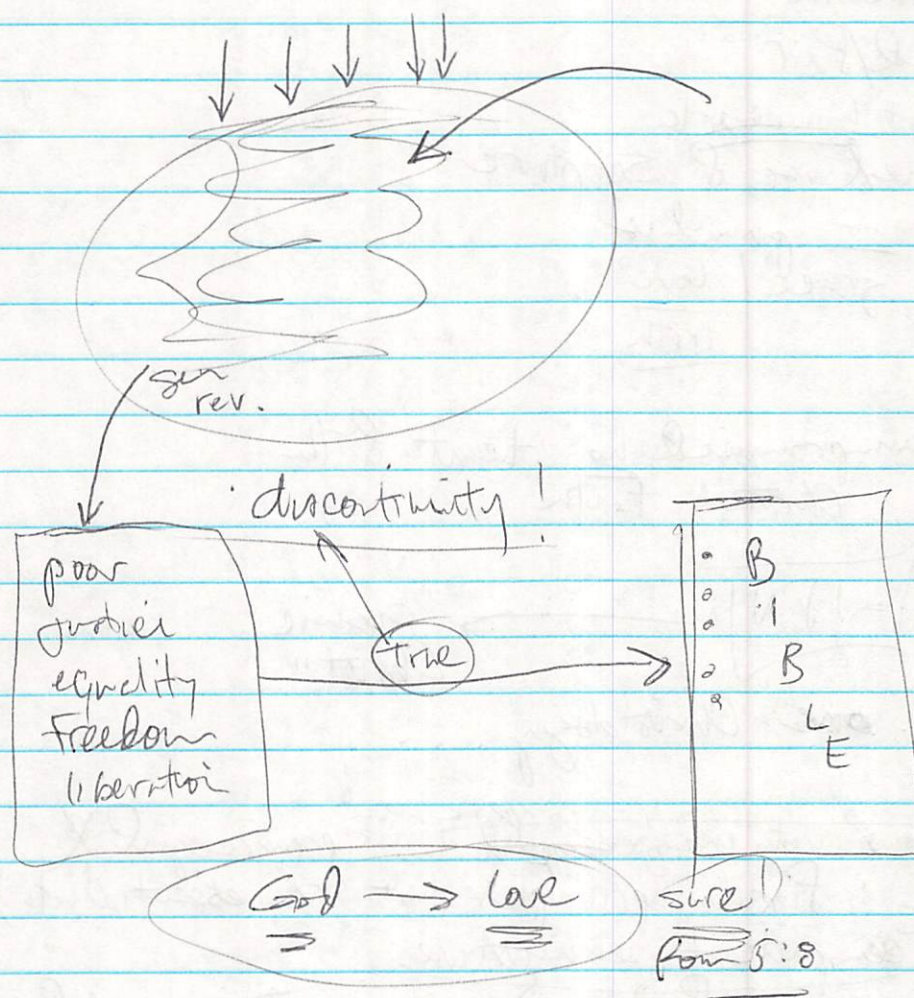 gen
rev.
discontinuity!
poor
justice
equality
Freedom
liberation
true
B
i
B
L
E
God → love
sure!
Rom 5:8